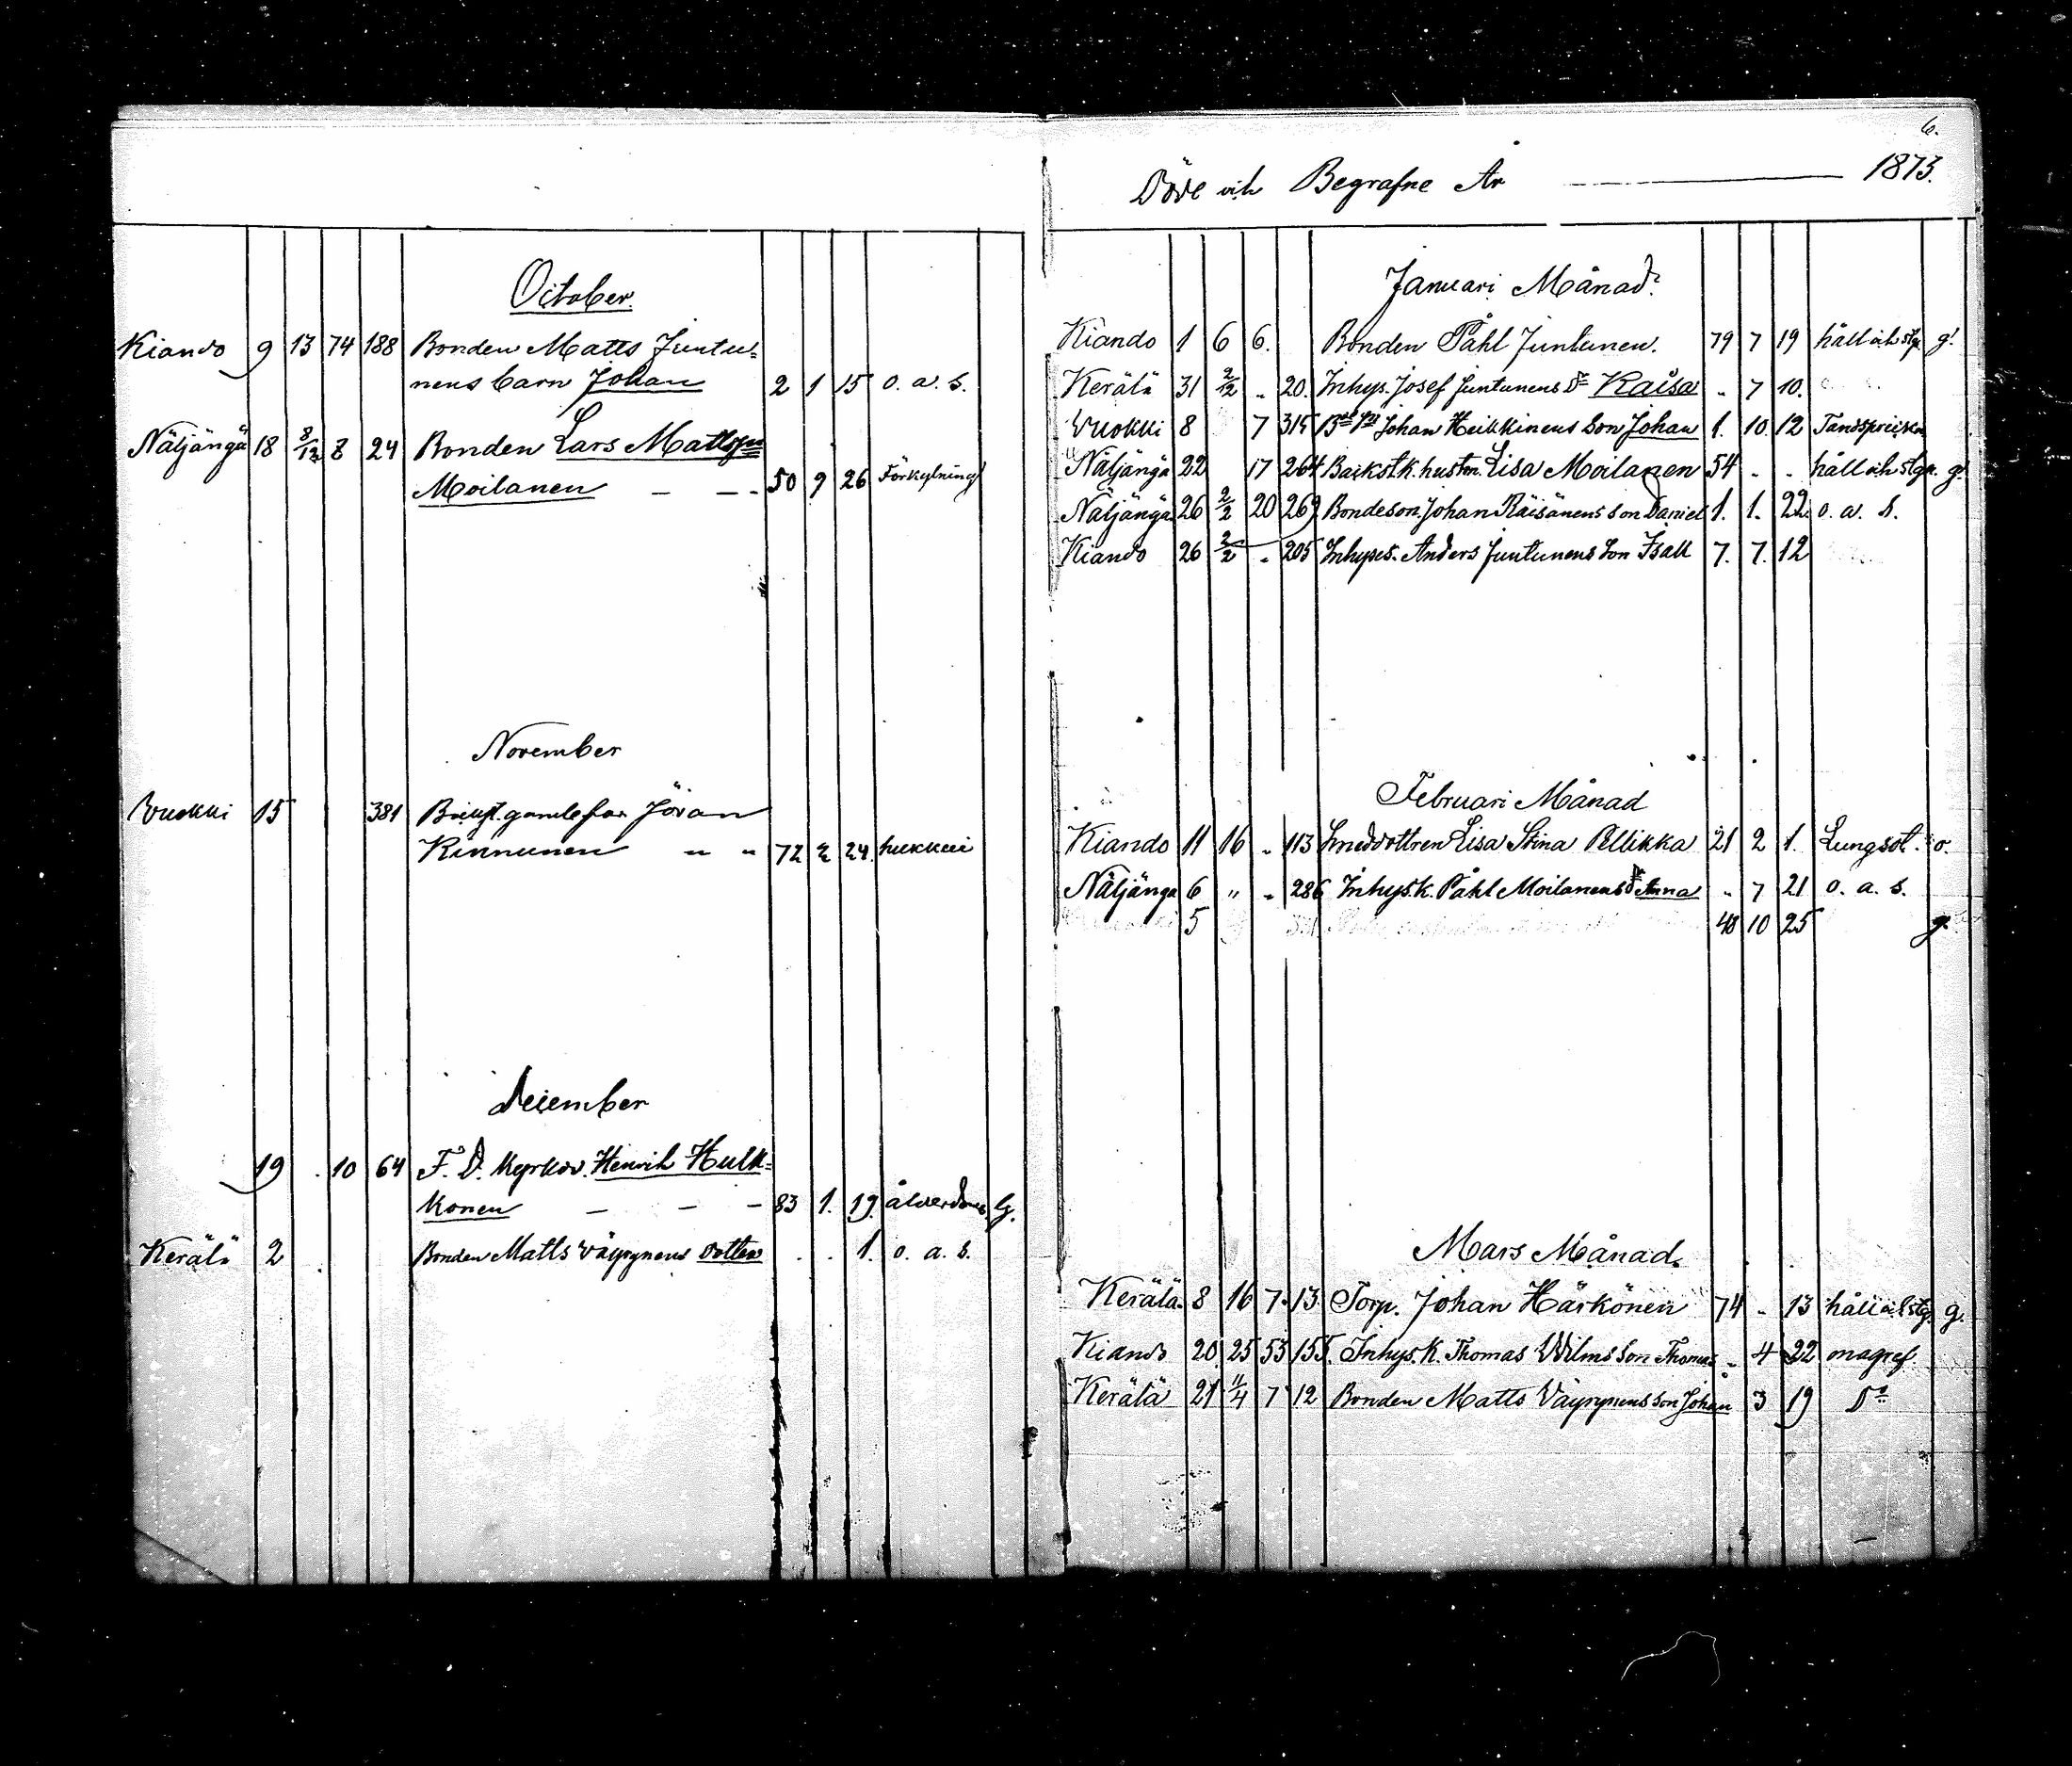 October
Kiando 9 13 74 188 Bonden Matts Juntu=
nens barn Johan 2 1 15 o. a. s.
Näljängä 18 8/12 8 24 Bonden Lars Mattsson
Moilanen — — - 50 9 26 Förkylning
November
Vuokki 15 381 gamlefar Jöran
Kinnunen " " 72 2 24 hukkui
December
19 . 10 64 F. D. Kyrkov. Henrik Hulk=
konen — — — 83 1. 19. ålderdoms. g.
Kerälä 2 Bonden Matts Väyrynens dotter . . 1. o. a. s.
6.
Döde och Begrafne År — 1873.
Januari Månad.
Kiando 1 6 6. Bonden Påhl Juntunen. 79 7 19 håll och stgn g.
Kerälä 31 2/12 " 20. Inhys. Josef Juntunens Dr Kaisa " 7 10.
Vuokki 8 7 315 Johan Heikkinens Son Johan 1. 10. 12
Näljängä 22 17 264 Backst.k. hustru Lisa Moilanen 54 - - håll och stgn. g.
Näljängä 26 2/2 20 269 Bondeson Johan Räisänens son Daniel 1. 1. 22. o. a. s.
Kiando 26 2/2 " 205 Inhyses. Anders Juntunens Son Isak 7. 7. 12
Februari Månad
Kiando 11 16 " 113 Smeddottren Lisa Stina Pellikka 21 2 1. Lungsot. o.
Näljängä 6 " " 286 Inhys.k. Påhl Moilanens dr Anna " 7 21 o. a. s.
5 48 10 25 g.
Mars Månad.
Kerälä 8 16 7. 13. Torp. Johan Härkönen 74 - 13 håll och stgn. g.
Kiando 20 25 53 155. Inhys.k. Thomas Wilms Son Thomas - 4 22 magref
Kerälä 21 11/4 7 12 Bonden Matts Väyrynens son Johan 3 19 Do